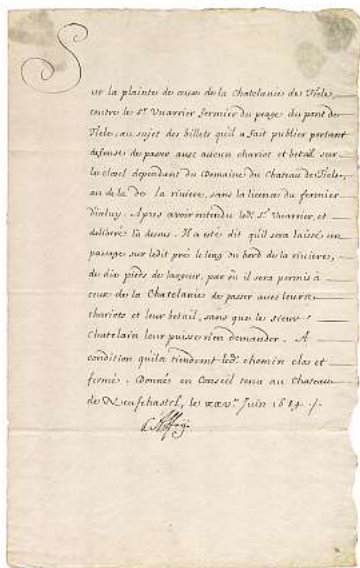 Sur la plainte de ceux de la Chatelanie de Thiele,
contre le Sr. Vuarrier fermier du peage du pont de
Thiele, au sujet des billets qu'il a fait publier portant
defense de passer avec aucun chariot et betail sur
le clos dependant du Domaine du Chateau de Thiele,
au de la de la riviere, sans la licence du fermier
d'iceluy. Apres avoir entendu led. Sr. Vuarrier, et
deliberé là dessus. Il a esté dit qu'il sera laissé un
passage sur ledit pré le long du bord de la riviere,
de dix pieds de largeur, par où il sera permis à
ceux de la Chatelanie de passer avec leurs
chariots et leur betail, sans que le sieur
Chatelain leur puisse rien demander. A
condition qu'ils tiendront led. chemin clos et
fermé. Donné en Conseil tenu au Chateau
de Neufchastel, le xxv.e Juin 1684 ./.